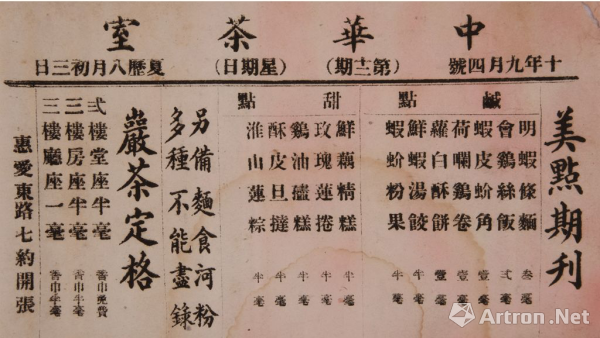 中華茶室
十年九月四號
(星期日)
夏歷八月初三日
美點期刊
鹹點
明蝦條麵 叁毫
會鷄絲飯 弍毫
蝦皮蚧角 壹毫
荷嚹鷄卷 壹毫
蘿白酥餅 壹毫
鮮蝦湯餃 半毫
蝦蚧粉果 半毫
甜點
鮮藕精糕 半毫
玫瑰蓮捲 半毫
鷄油糕 半毫
酥皮旦撻 半毫
淮山蓮粽 半毫
另備麵食河粉
多種不能盡錄
巖茶定格
弍樓堂座半毫 香巾免費
三樓房座半毫 香巾半毫
三樓廳座一毫 香巾半毫
惠愛東路七約開張
Artron.Net